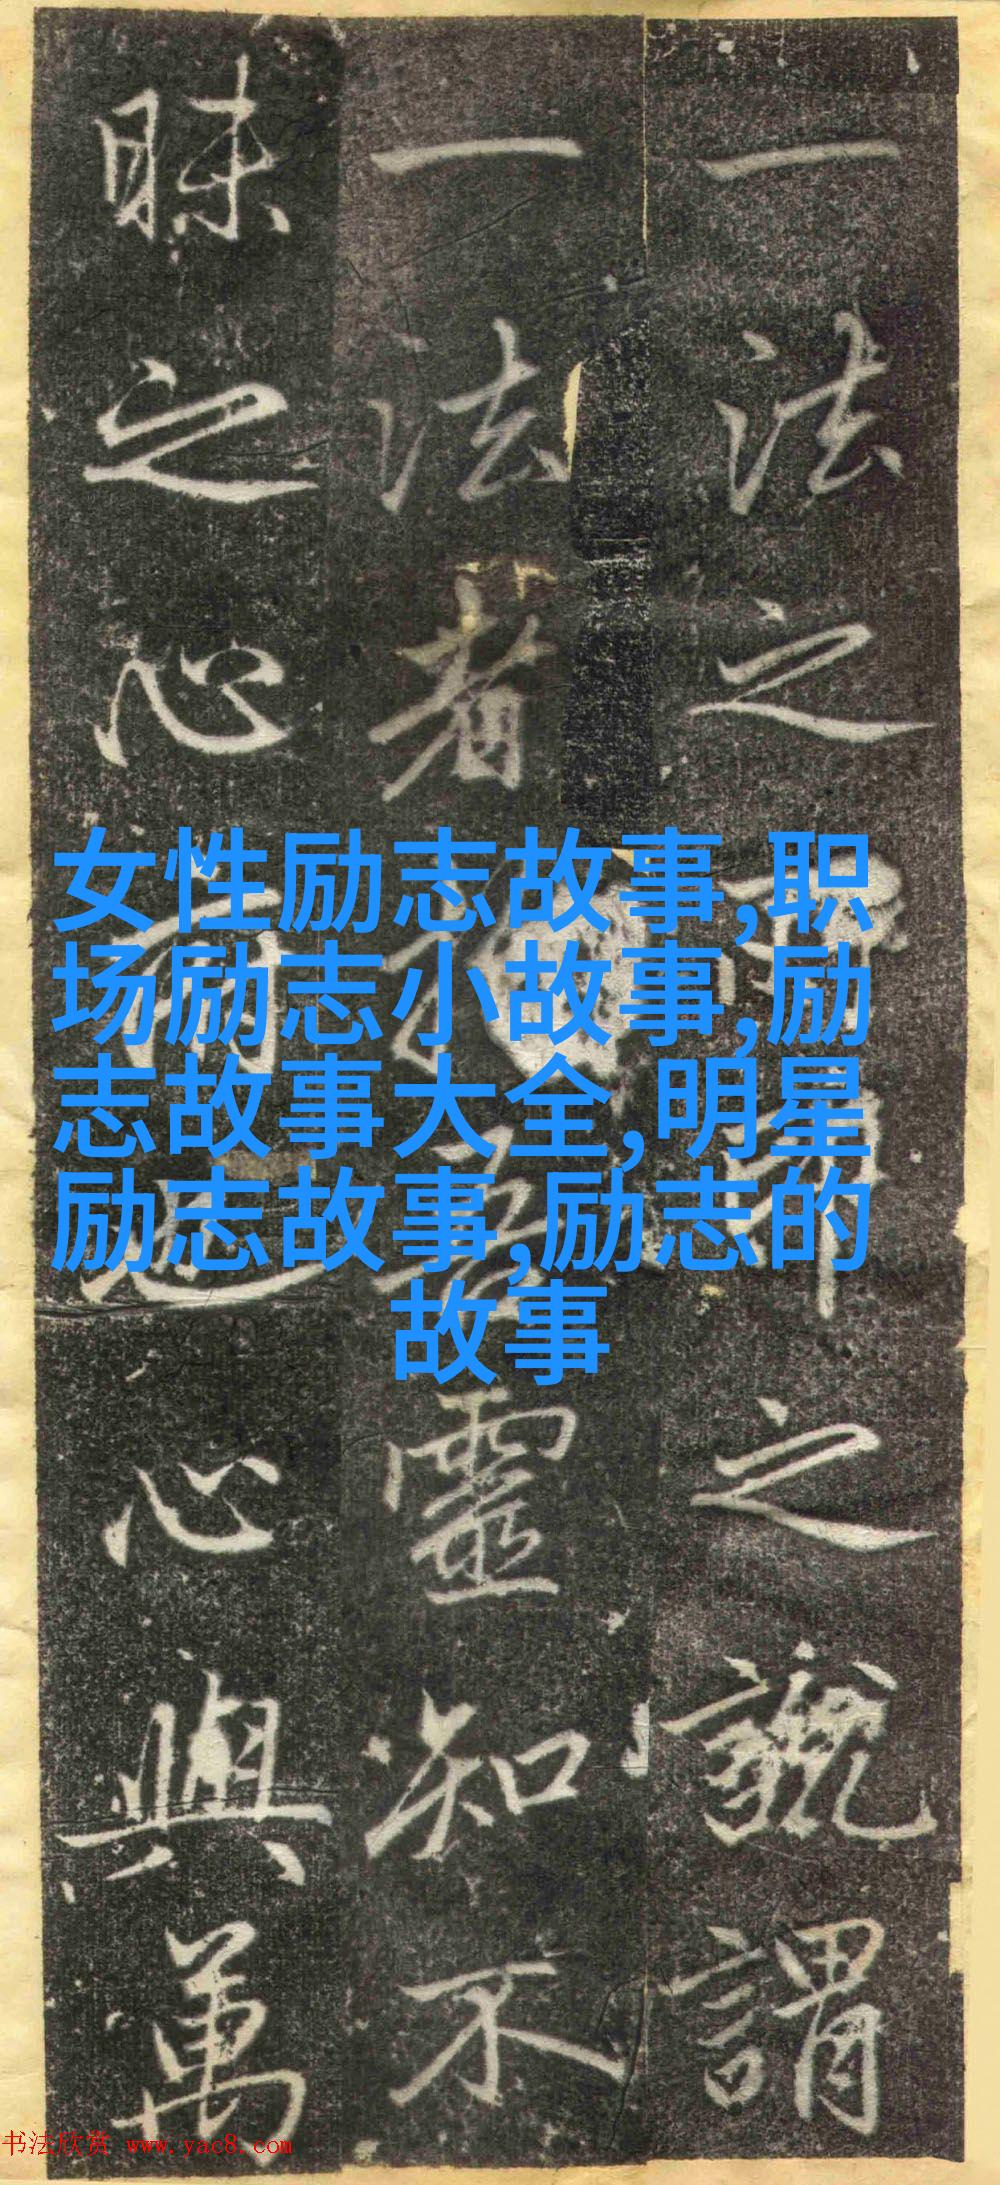 一法之之說謂
一法者靈知不
昧之心心與萬
女性励志故事,职
场励志小故事,励
志故事大全,明星
励志故事,励志的
故事
书法欣赏 www.yac8.com